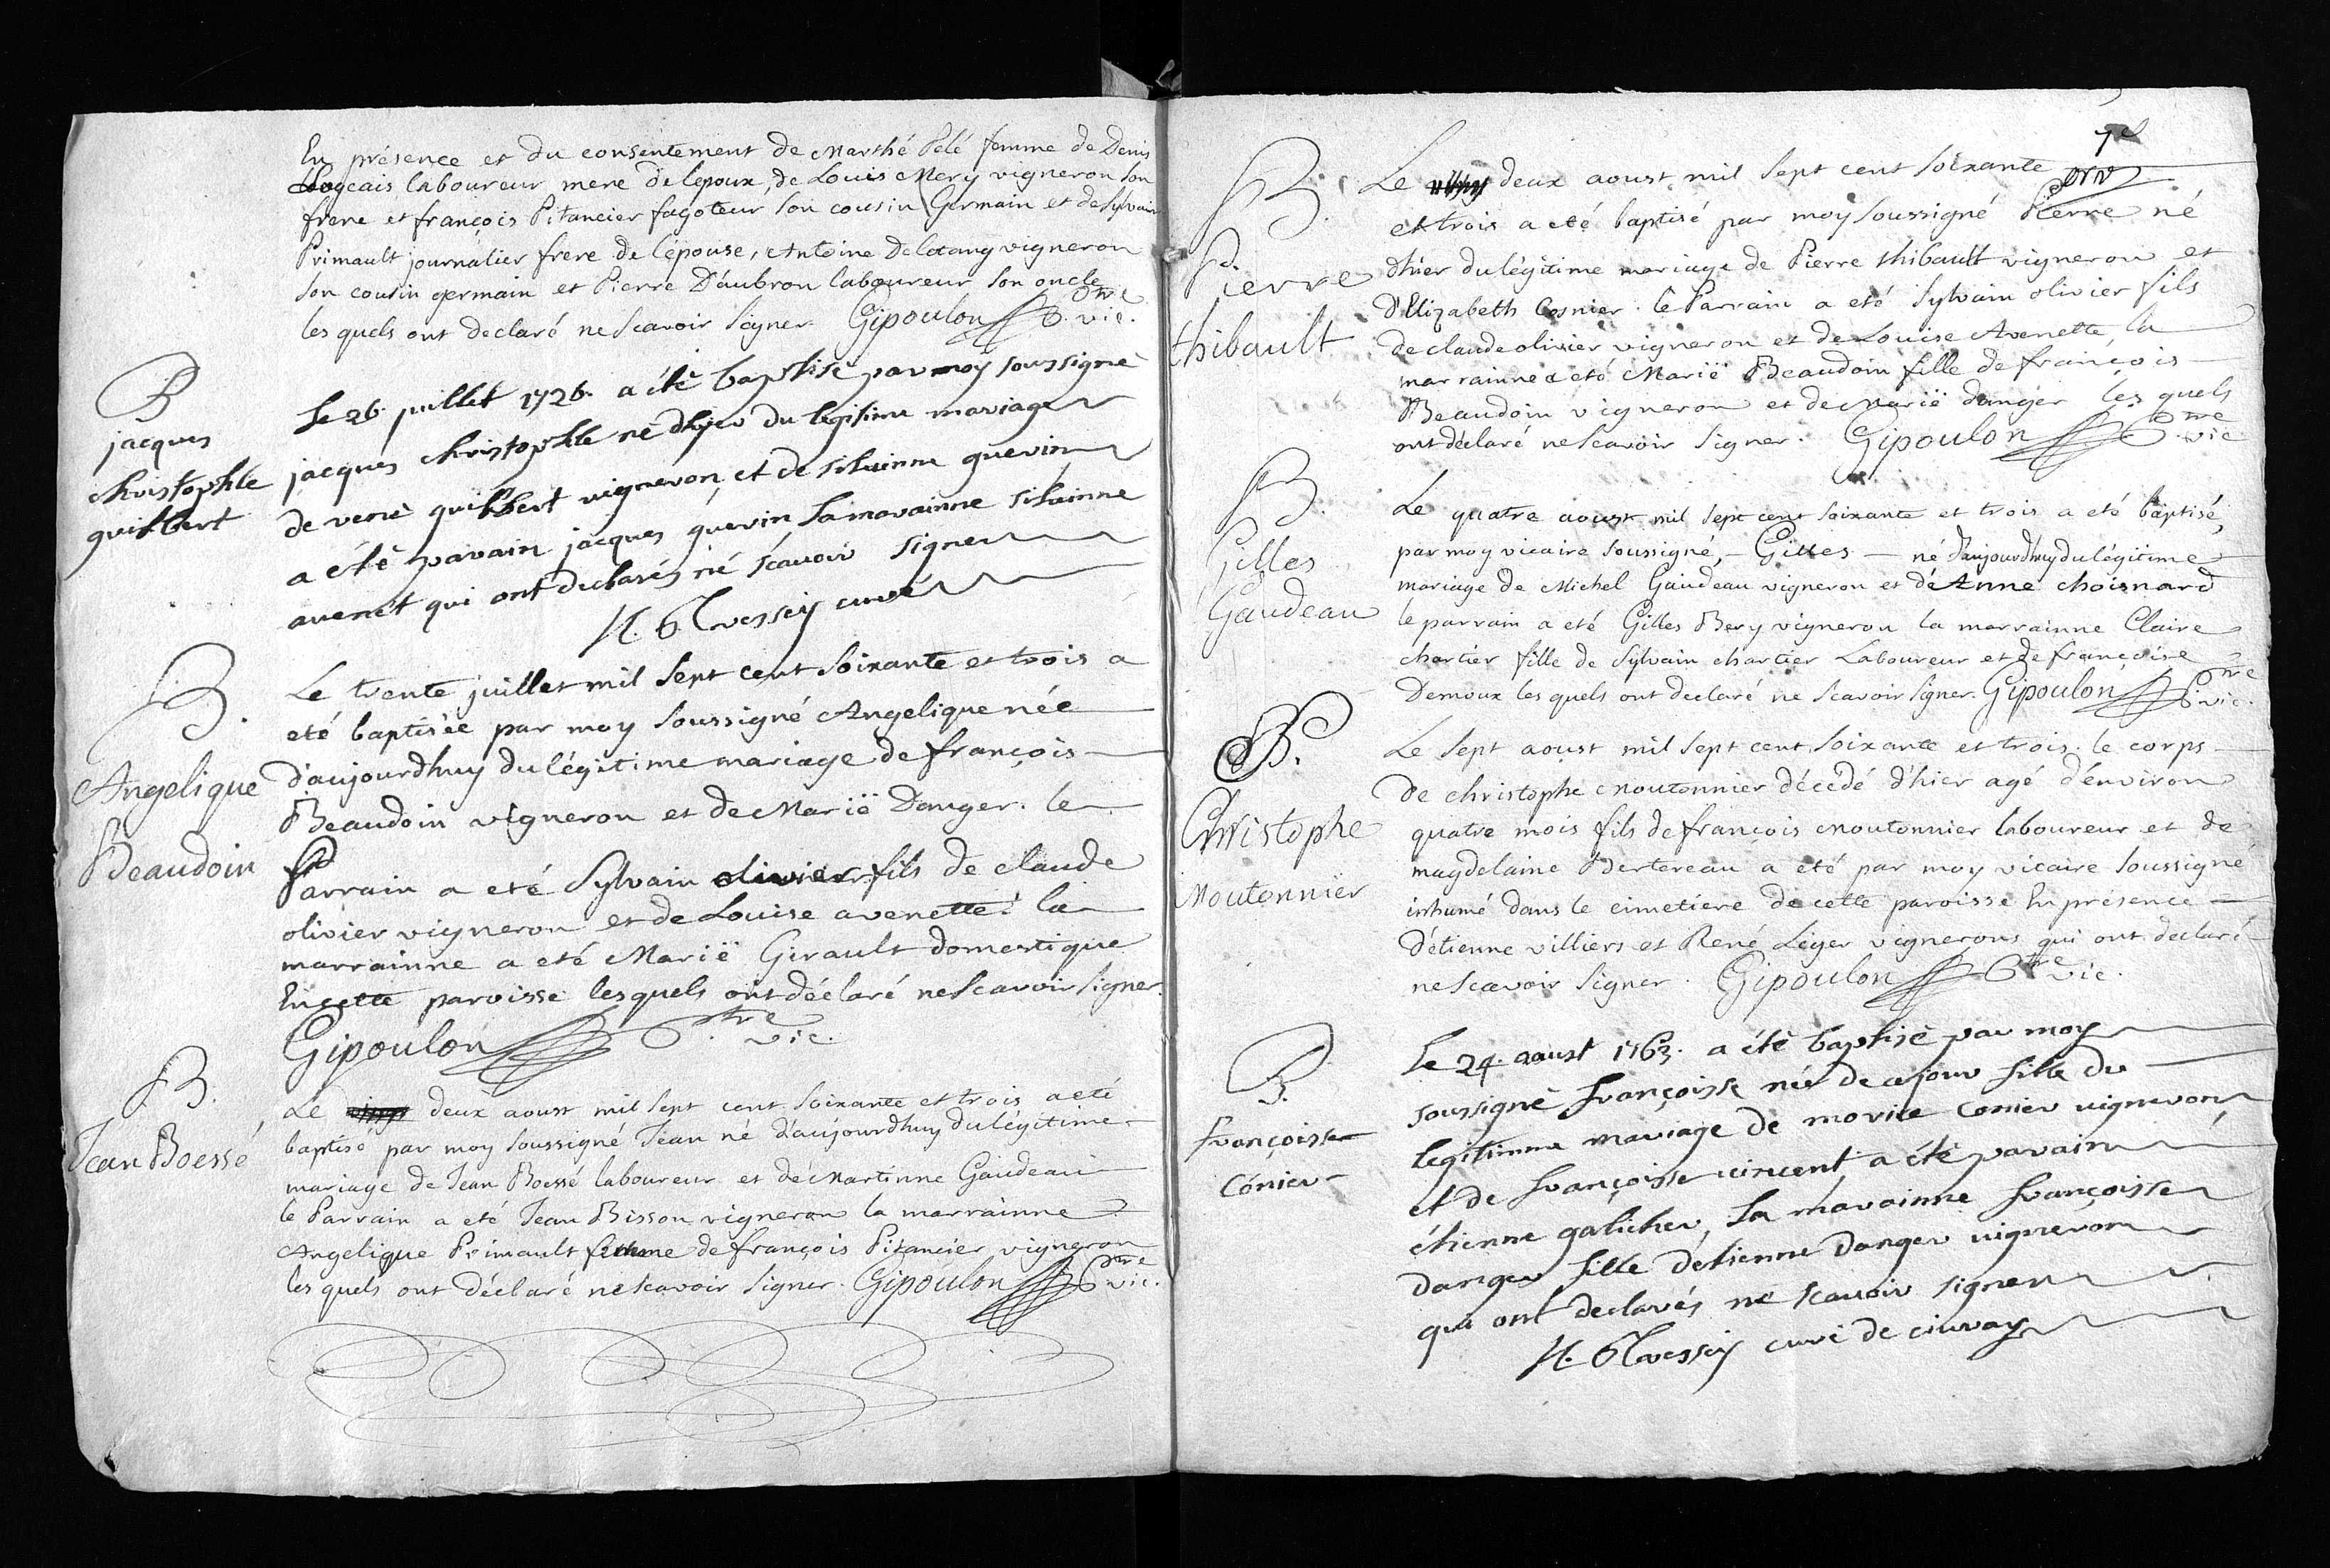 En présence et du consentement de Marthe Pelé femme de Denis
laboureur mere de lepoux, de Louis Mery vigneron son
frere et françois Pitancier fagoteur son cousin Germain et de Sylvain
Primault journalier frere de l'épouse, Antoine Deletang vigneron
son cousin germain et Pierre D'aubron laboureur son oncle
les quels ont declaré ne scavoir signer Gipoulon Ptre vic.
B
jacques
christophle
guilbert
Le 26. juillet 1726. a été baptisé par moy soussigné
jacques christophle né dhyer du legitime mariage
de rené guilbert vigneron, et de silvinne guerin
a été parain jacques guerin, la marainne silvinne
avenet qui ont declarés né scavoir signer
curé
B.
Angelique
Beaudoin
Le trente juillet mil sept cent soixante et trois a
eté baptisée par moy soussigné Angelique née
d'aujourdhuy du légitime mariage de françois
Beaudoin vigneron et de Marië Danger. le
Parrain a eté Sylvain olivier fils de claude
olivier vigneron et de Louise avenette. la
marrainne a eté Marië Girault domestique
En cette paroisse lesquels ont déclaré ne scavoir signer.
Gipoulon Ptre vic.
B.
Jean Boessé
Le deux aoust mil sept cent soixante et trois a eté
baptisé par moy soussigné Jean né d'aujourdhuy du légitime
mariage de Jean Boessé laboureur et de Martinne Gaudeau
le Parrain a eté Jean Bisson vigneron la marrainne
Angelique Primault femme de françois Pitancier vigneron
les quels ont déclaré ne scavoir signer. Gipoulon Ptre vic.
7e
B.
Pierre
thibault
Le deux aoust mil sept cent soixante
et trois a eté baptisé par moy soussigné Pierre né
d'hier du légitime mariage de Pierre thibault vigneron et
d'Elizabeth Cosnier. le Parrain a eté Sylvain olivier fils
de claude olivier vigneron et de Louise Avenette, la
marrainne a eté Marië Beaudoin fille de françois
Beaudoin vigneron et de Marië danger les quels
ont déclaré ne scavoir signer. Gipoulon Ptre vic
B.
Gilles
Gaudeau
Le quatre aoust mil sept cent soixante et trois a eté baptisé,
par moy vicaire soussigné, - Gilles - né d'aujourdhuy du légitime
mariage de Michel Gaudeau vigneron et de Anne choisnard
le parrain a eté Gilles Bery vigneron la marrainne Claire
chartier fille de Sylvain chartier Laboureur et de françoise
Demoux les quels ont declaré ne scavoir signer. Gipoulon Ptre vic.
Christophe
Moutonnier
Le sept aoust mil sept cent soixante et trois. le corps
de christophe Moutonnier décédé d'hier agé d'environ
quatre mois fils de françois Moutonnier laboureur et de
magdelaine Bertereau a eté par moy vicaire soussigné
inhumé dans le cimetiere de cette paroisse En présence
d'étienne villiers et René Léger vignerons qui ont declaré
ne scavoir signer. Gipoulon Ptre vic.
B.
françoisse
Cónier
Le 24. aoust 1763. a été baptisé par moy
soussigné françoisse née de ce jour fille du
legitimme mariage de morice conier vigneron
et de françoisse vincent, a été parain
étienne galicher, la marainne françoisse
danger fille detienne danger vigneron
qui ont declarés ne scavoir signer
curé de civray